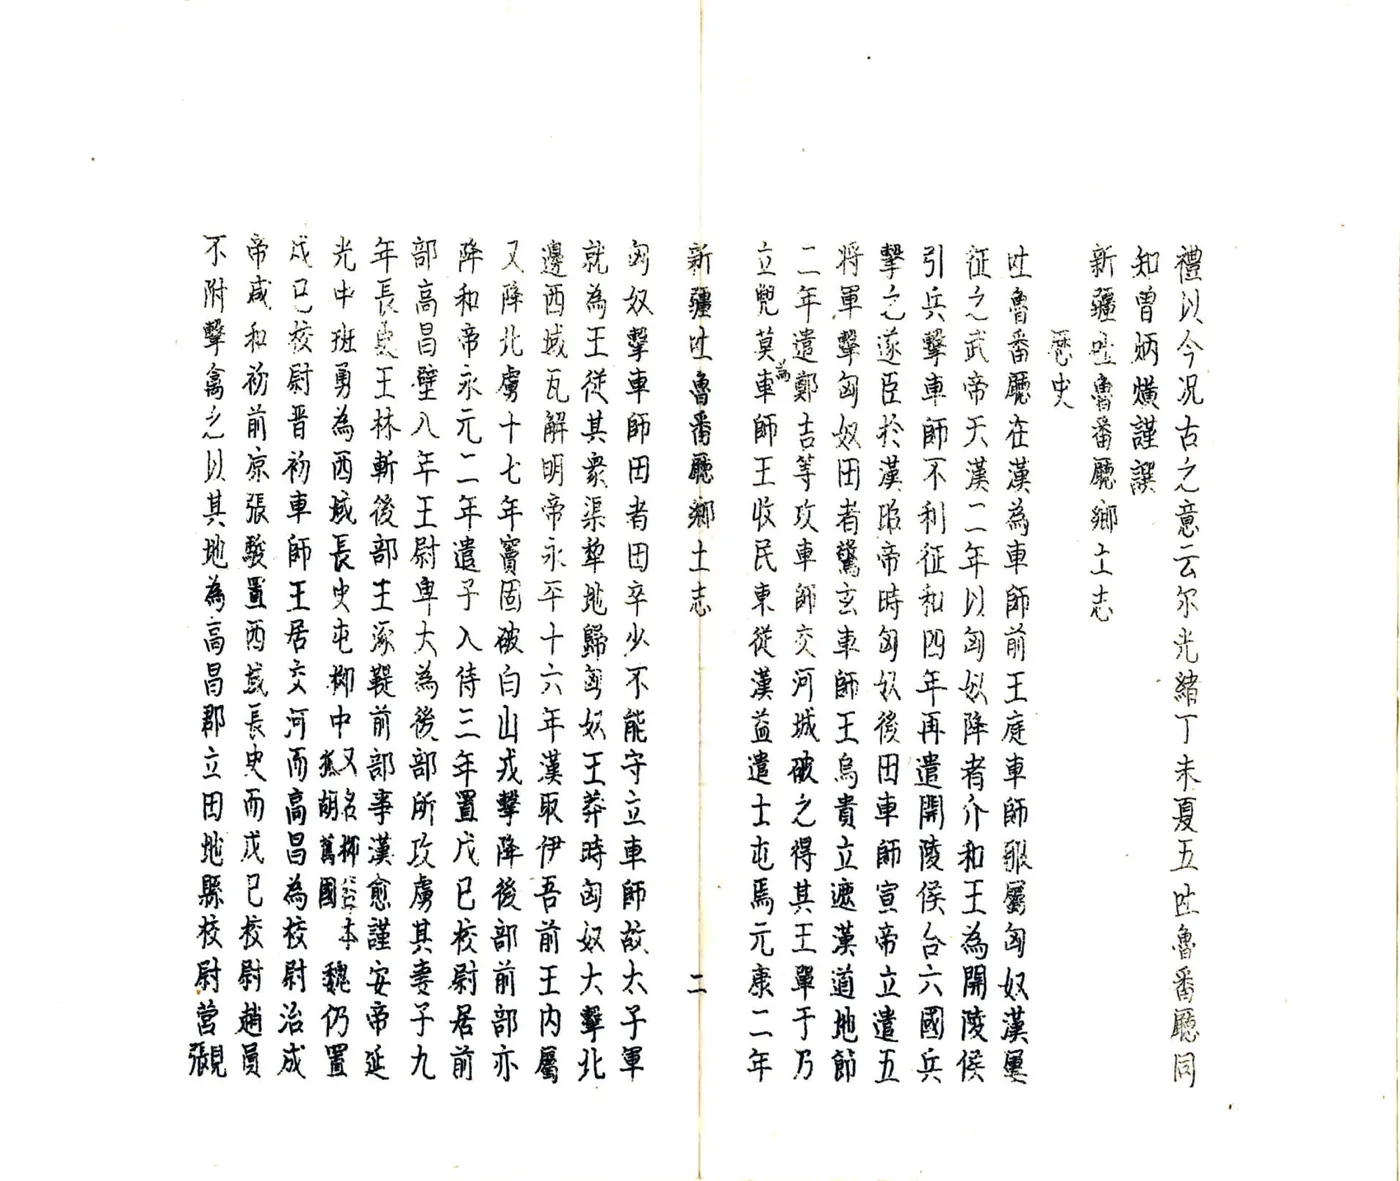 禮以今况古之意云尔光緒丁未夏五吐魯番廳同
知曾炳熿謹譔
新疆吐魯番廳鄉土志
歷史
吐魯番廳在漢為車師前王庭車師服屬匈奴漢屢
征之武帝天漢二年以匈奴降者介和王為開陵侯
引兵擊車師不利征和四年再遣開陵侯合六國兵
擊之遂臣於漢昭帝時匈奴後田車師宣帝立遣五
將軍擊匈奴田者驚去車師王烏貴立遮漢道地節
二年遣鄭吉等攻車師交河城破之得其王單于乃
立兜莫為車師王收民東徙漢益遣士屯焉元康二年
新疆吐魯番廳鄉土志 二
匈奴擊車師田者田卒少不能守立車師故太子軍
就為王徙其衆渠犂地歸匈奴王莽時匈奴大擊北
邊西域瓦解明帝永平十六年漢取伊吾前王內屬
又降北虜十七年竇固破白山戎擊降後部前部亦
降和帝永元二年遣子入侍三年置戊已校尉居前
部高昌壁八年王尉卑大為後部所攻虜其妻子九
年長史王林斬後部王涿鞮前部事漢愈謹安帝延
光中班勇為西域長史屯柳中又名柳谷本狐胡舊國魏仍置
戊已校尉晋初車師王居交河而高昌為校尉治成
帝咸和初前凉張駿置西域長史而戊已校尉趙員
不附擊禽之以其地為高昌郡立田地縣校尉營覜